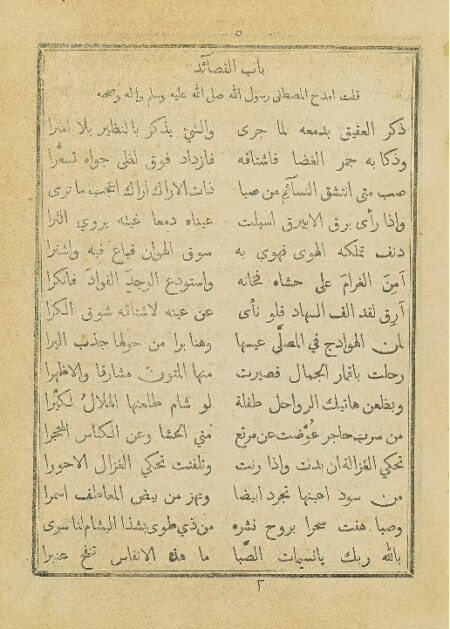 ٥
باب القصائد
قلت امدح المصطفى رسول الله صلى الله عليه وسلم واله وصحبه
ذكر العقيق بدمعه لما جرى والشيئ يذكر بالنظير بلا افترا
وذكا به جمر الغضا فاشتاقه فازداد فوق لظى جواه تسعّرا
صب متى انتشق النسائم من صبا ذات الاراك اراك اعجب ما ترى
واذا رأى برق الابيرق اسبلت عيناه دمعا غيثه يروي الثرا
دنف تملكه الهوى فهوي به سوق الهوان فباع فيه واشترا
أمن الغرامَ على حشاه فخانه واستودع الوجدَ الفوادَ فانكرا
أرِق لقد الف السهاد فلو نأى عن عينه لاشتاقه شوق الكرا
لمن الهوادج في المصلَّى عيسها وهنا برا من حولها جذب البرا
رحلت باقمار الجمال فصيرت منها المتون مشارقا والاظهرا
وبظعن هاتيك الرواحل طفلة لو شام طلعتها الهلالُ لكبّرا
من سرب حاجر عُوّضت عن مرتع مني الحشا وعن الكناس المحجرا
تحكي الغزالة ان بدت واذا رنت وتلفتت تحكي الغزال الاحورا
من سود اعينها تجرد ابيضا وتهز من بيض المعاطف اسمرا
وصبا هفت سحرا بروح نشره من ذي طوى بشذا البشام لنا سرى
بالله ربك يانسيمات الصَّبا ما هذه الانفاس تنفح عنبرا
٢